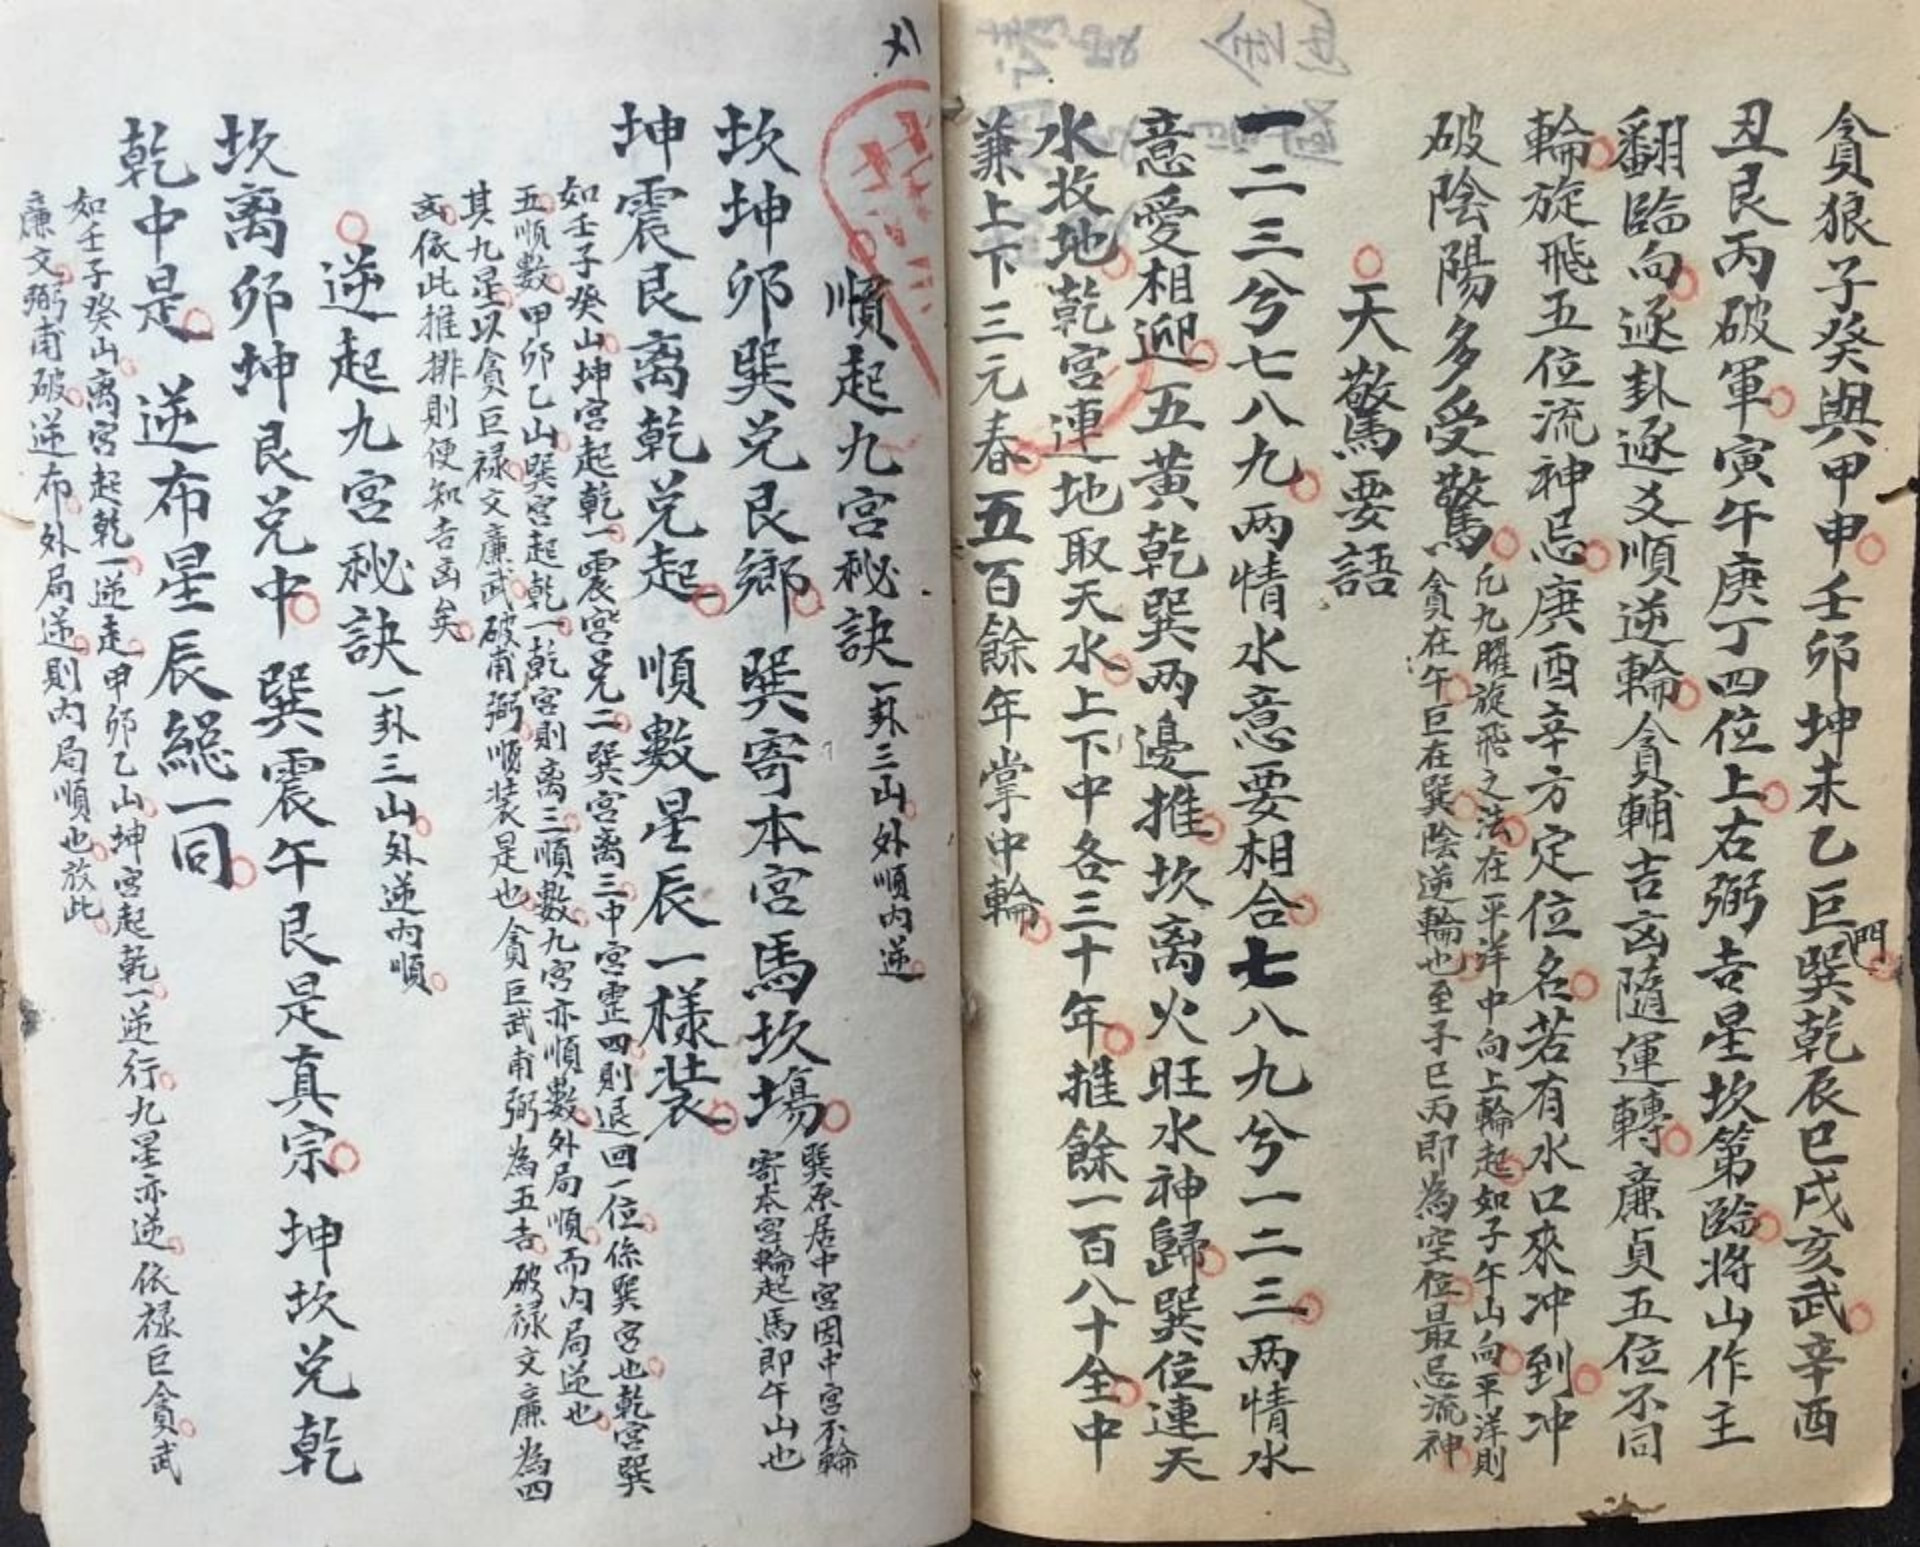 貪狼子癸與甲申壬卯坤未乙巨門巽乾辰巳戌亥武辛酉
丑艮丙破軍寅午庚丁四位上右弼吉星坎第臨將山作主
翻臨向逐卦逐爻順逆輪貪輔吉凶隨運轉廉貞五位不同
輪旋飛五位流神忌庚酉辛方定位名若有水口來冲到冲
破陰陽多受驚
凡九曜旋飛之法在平洋中向上輪起如子午山向平洋則
貪在午巨在巽陰逆輪也至子巳丙即為空位最忌流神
天驚要語
一二三兮七八九两情水意要相合七八九兮一二三两情水
意愛相迎五黃乾巽两邊推坎离火旺水神歸巽位連天
水放地乾宮連地取天水上下中各三十年推餘一百八十全中
兼上下三元春五百餘年掌中輪
順起九宮秘訣
一卦三山外順內逆
坎坤卯巽兑艮鄉 巽寄本宮馬坎塲
巽原居中宮因中宮不輪
寄本宮輪起馬即午山也
坤震艮离乾兑起 順數星辰一樣装
如壬子癸山坤宮起乾一震宮兑二巽宮离三中宮霊四則退回一位係巽宮也乾宮巽
五順數甲卯乙山巽宮起乾一乾宮則离三順數九宮亦順數外局順而內局逆也
其九星以貪巨禄文廉武破甫弼順装是也貪巨武甫弼為五吉破禄文廉為四
凶依此推排則便知吉凶矣
逆起九宮秘訣
一卦三山外逆內順
坎离卯坤艮兑中 巽震午艮是真宗 坤坎兑乾
乾中是 逆布星辰總一同
如壬子癸山离宮起乾一逆走甲卯乙山坤宮起乾一逆行九星亦逆依禄巨貪武
廉文弼甫破逆布外局逆則內局順也放此